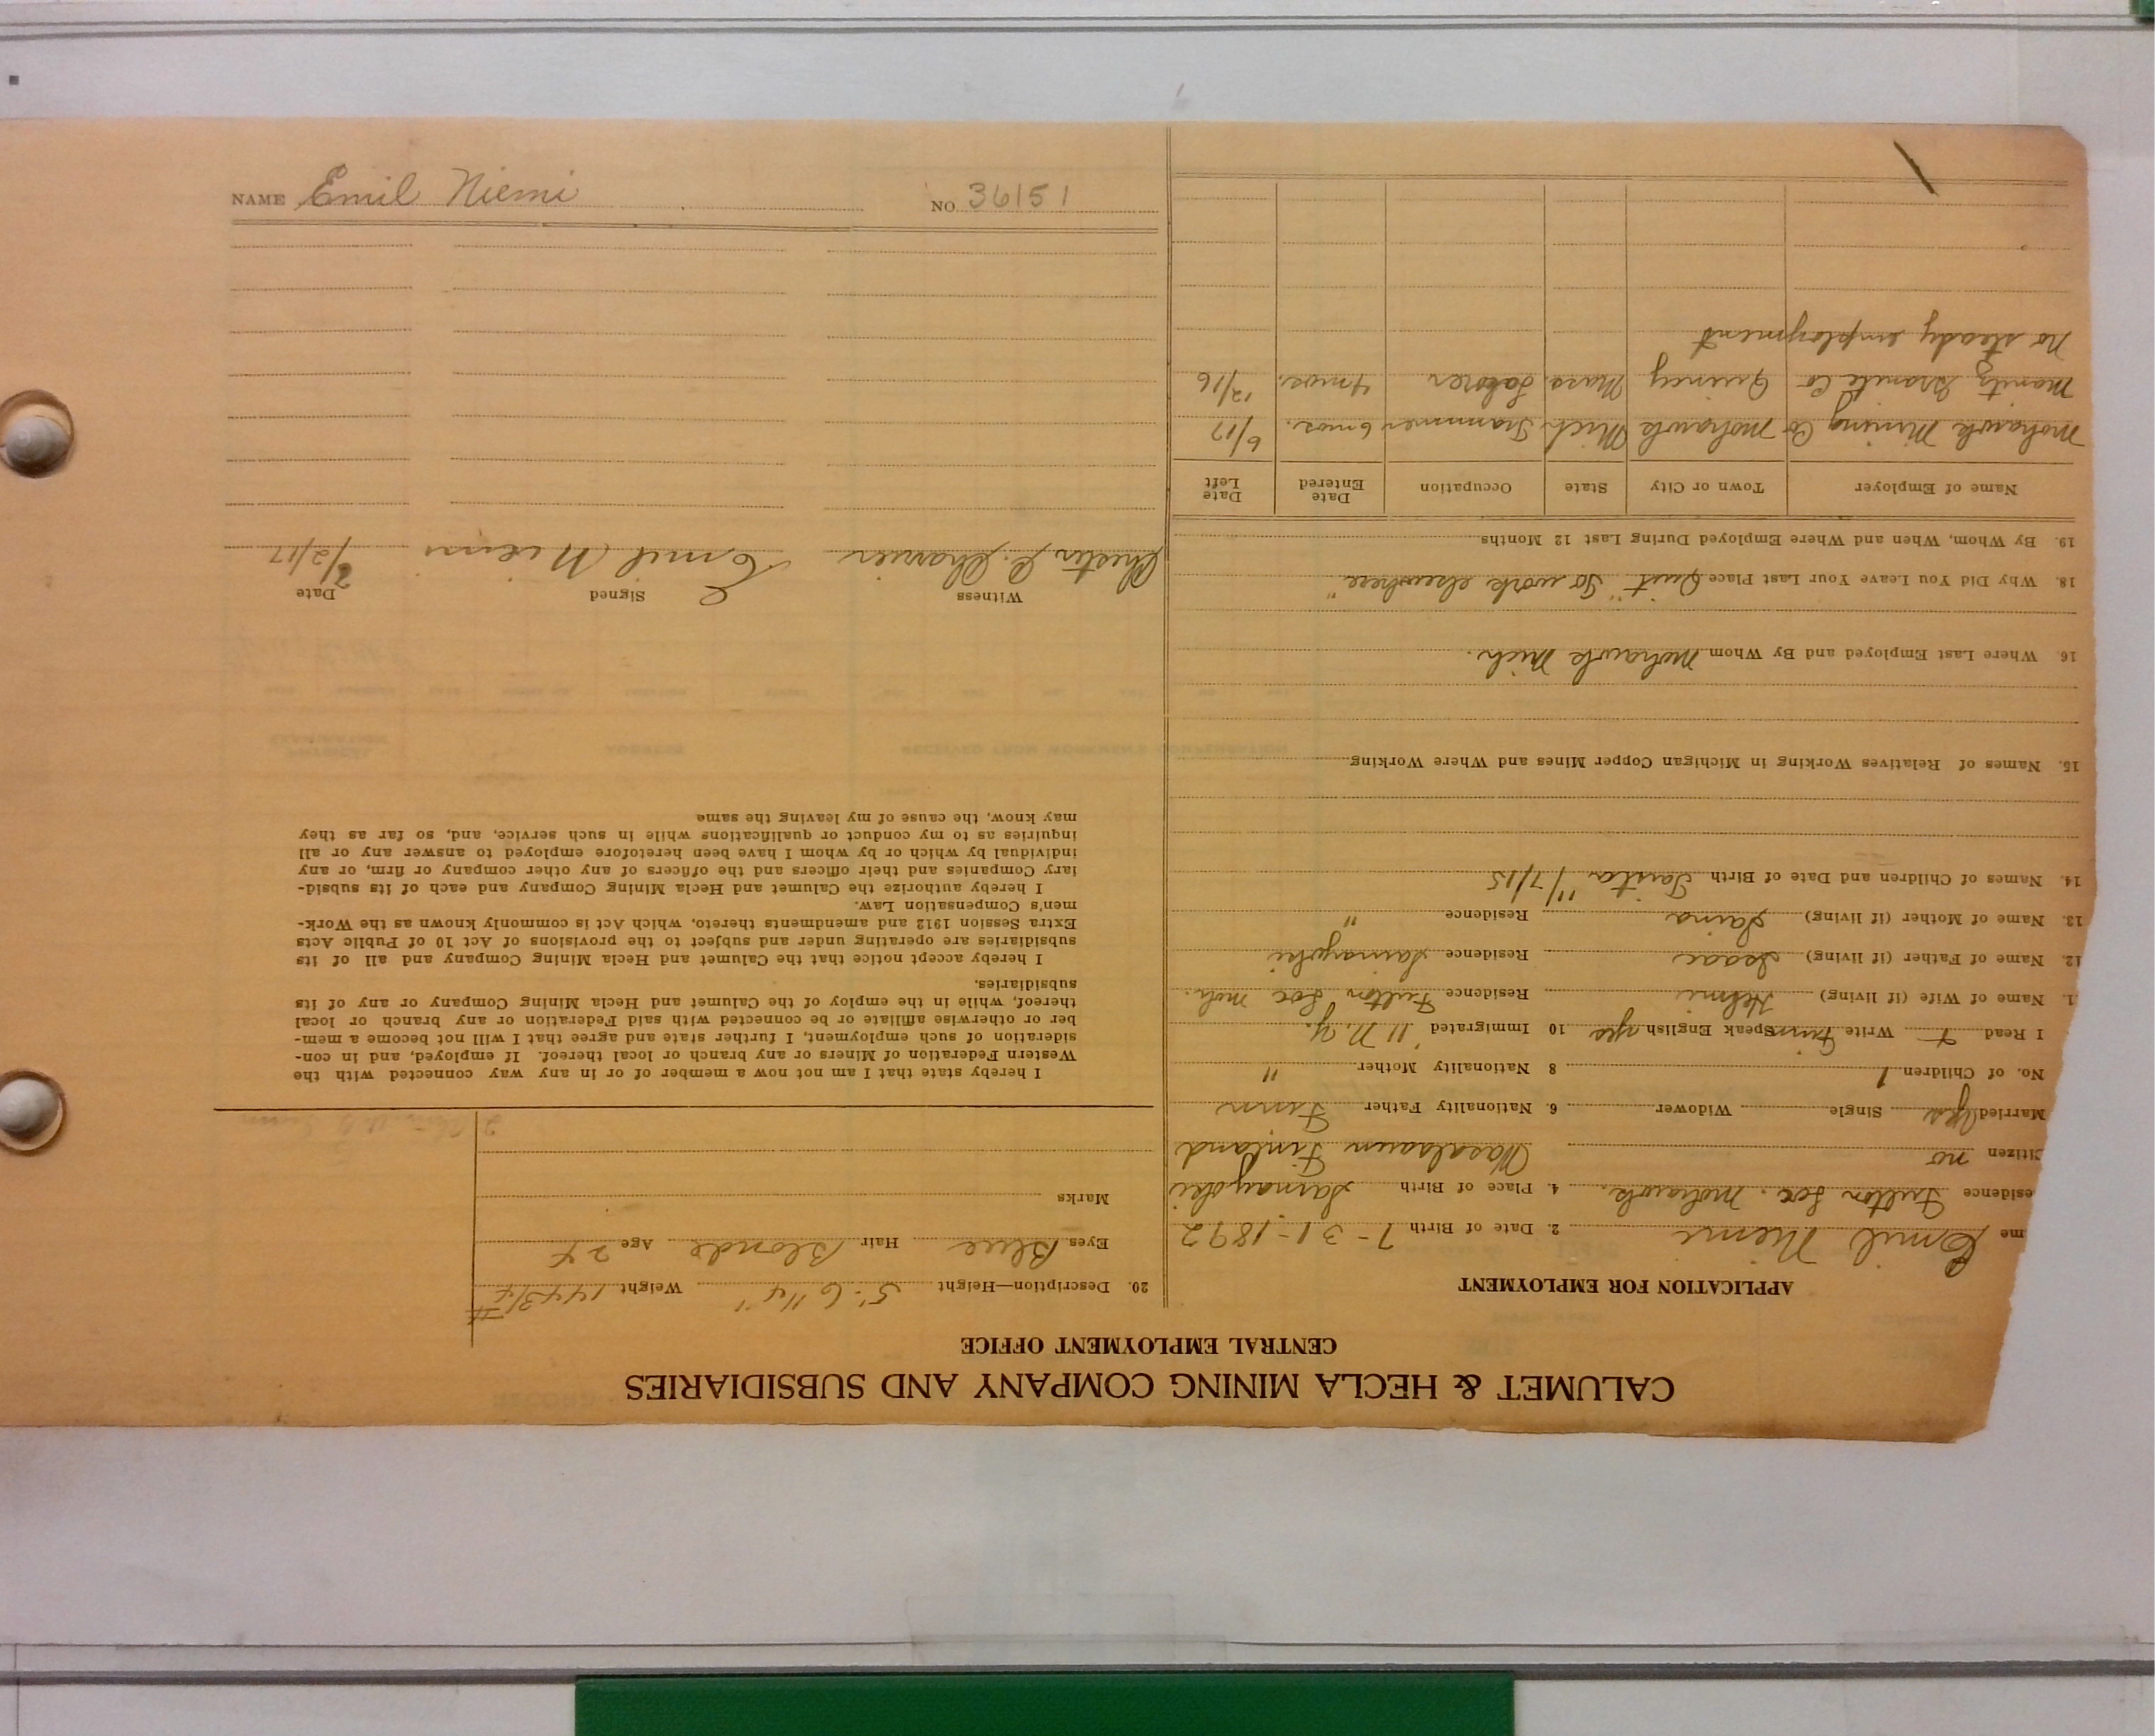 CALUMET & HECLA MINING COMPANY AND SUBSIDIARIES
CENTRAL EMPLOYMENT OFFICE
APPLICATION FOR EMPLOYMENT
me Emil Niemi 2. Date of Birth 7-31-1892
esidence Fulton Loc. Mohawk. 4. Place of Birth
Citizen no Finland
Married yes Single Widower 6. Nationality Father Finn
No. of Children 1 8 Nationality Mother "
I Read + Write Finnish Speak English yes 10 Immigrated '11 N.Y.
1. Name of Wife (if living) Helmi Residence Fulton Loc Moh.
12. Name of Father (if living) Isaac Residence
13. Name of Mother (if living) Residence "
14. Names of Children and Date of Birth 11/7/15
15. Names of Relatives Working in Michigan Copper Mines and Where Working
16. Where Last Employed and By Whom Mohawk Mich.
18. Why Did You Leave Your Last Place Quit "To work elsewhere"
19. By Whom, When and Where Employed During Last 12 Months
Name of Employer Town or City State Occupation Date Entered Date Left
Mohawk Mining Co Mohawk Mich Trammer 6 mos. 6/17
Granite Co Quincy Mass. Laborer 4 mos. 12/16
No steady employment
20. Description—Height 5'-6 1/4" Weight 144 3/4 #
Eyes Blue Hair Blonde Age 24
Marks
I hereby state that I am not now a member of or in any way connected with the
Western Federation of Miners or any branch or local thereof. If employed, and in con-
sideration of such employment, I further state and agree that I will not become a mem-
ber or otherwise affiliate or be connected with said Federation or any branch or local
thereof, while in the employ of the Calumet and Hecla Mining Company or any of its
subsidiaries.
I hereby accept notice that the Calumet and Hecla Mining Company and all of its
subsidiaries are operating under and subject to the provisions of Act 10 of Public Acts
Extra Session 1912 and amendments thereto, which Act is commonly known as the Work-
men's Compensation Law.
I hereby authorize the Calumet and Hecla Mining Company and each of its subsid-
iary Companies and their officers and the officers of any other company or firm, or any
individual by which or by whom I have been heretofore employed to answer any or all
inquiries as to my conduct or qualifications while in such service, and, so far as they
may know, the cause of my leaving the same
Witness Signed Date
Emil Niemi
NAME Emil Niemi NO. 36151